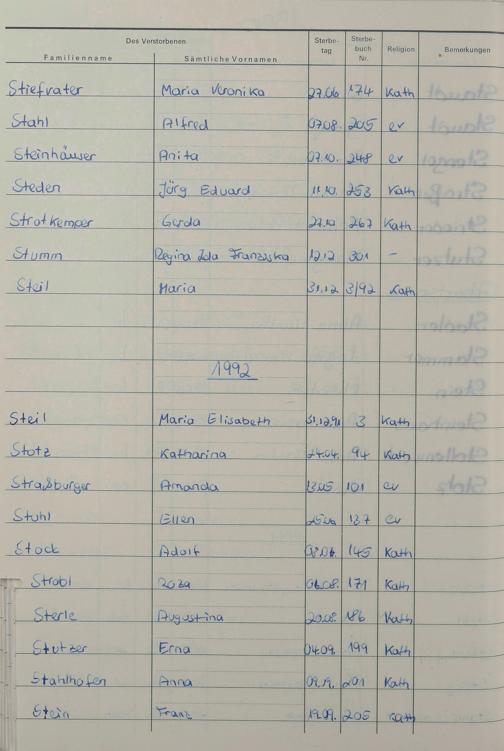 Des Verstorbenen Sterbe- tag Sterbe- buch Nr. Religion Bemerkungen
Familienname Sämtliche Vornamen
Stiefvater Maria Veronika 27.06 174 Kath
Stahl Alfred 07.08. 205 ev
Steinhäuser Anita 07.10. 248 ev
Steden Jörg Eduard 11.10. 253 Kath
Strotkemper Gerda 27.10 267 Kath
Stumm Regina Ida Franziska 12.12 301 -
Steil Maria 31.12 3/92 Kath
1992
Steil Maria Elisabeth 31.12.91 3 Kath
Stotz Katharina 24.04. 94 Kath
Straßburger Amanda 13.05 101 ev
Stuhl Ellen 137 ev
Stock Adolf 145 Kath
Strobl Roza 06.08. 171 Kath
Sterle Augustina 20.08. 186 Kath
Stutzer Erna 04.09. 199 Kath
Stahlhofen Anna 201 Kath
Stein Franz 19.09. 205 Kath